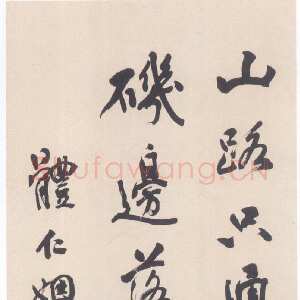 山路只通
磯邊落
體仁姻
Shufawang.CN